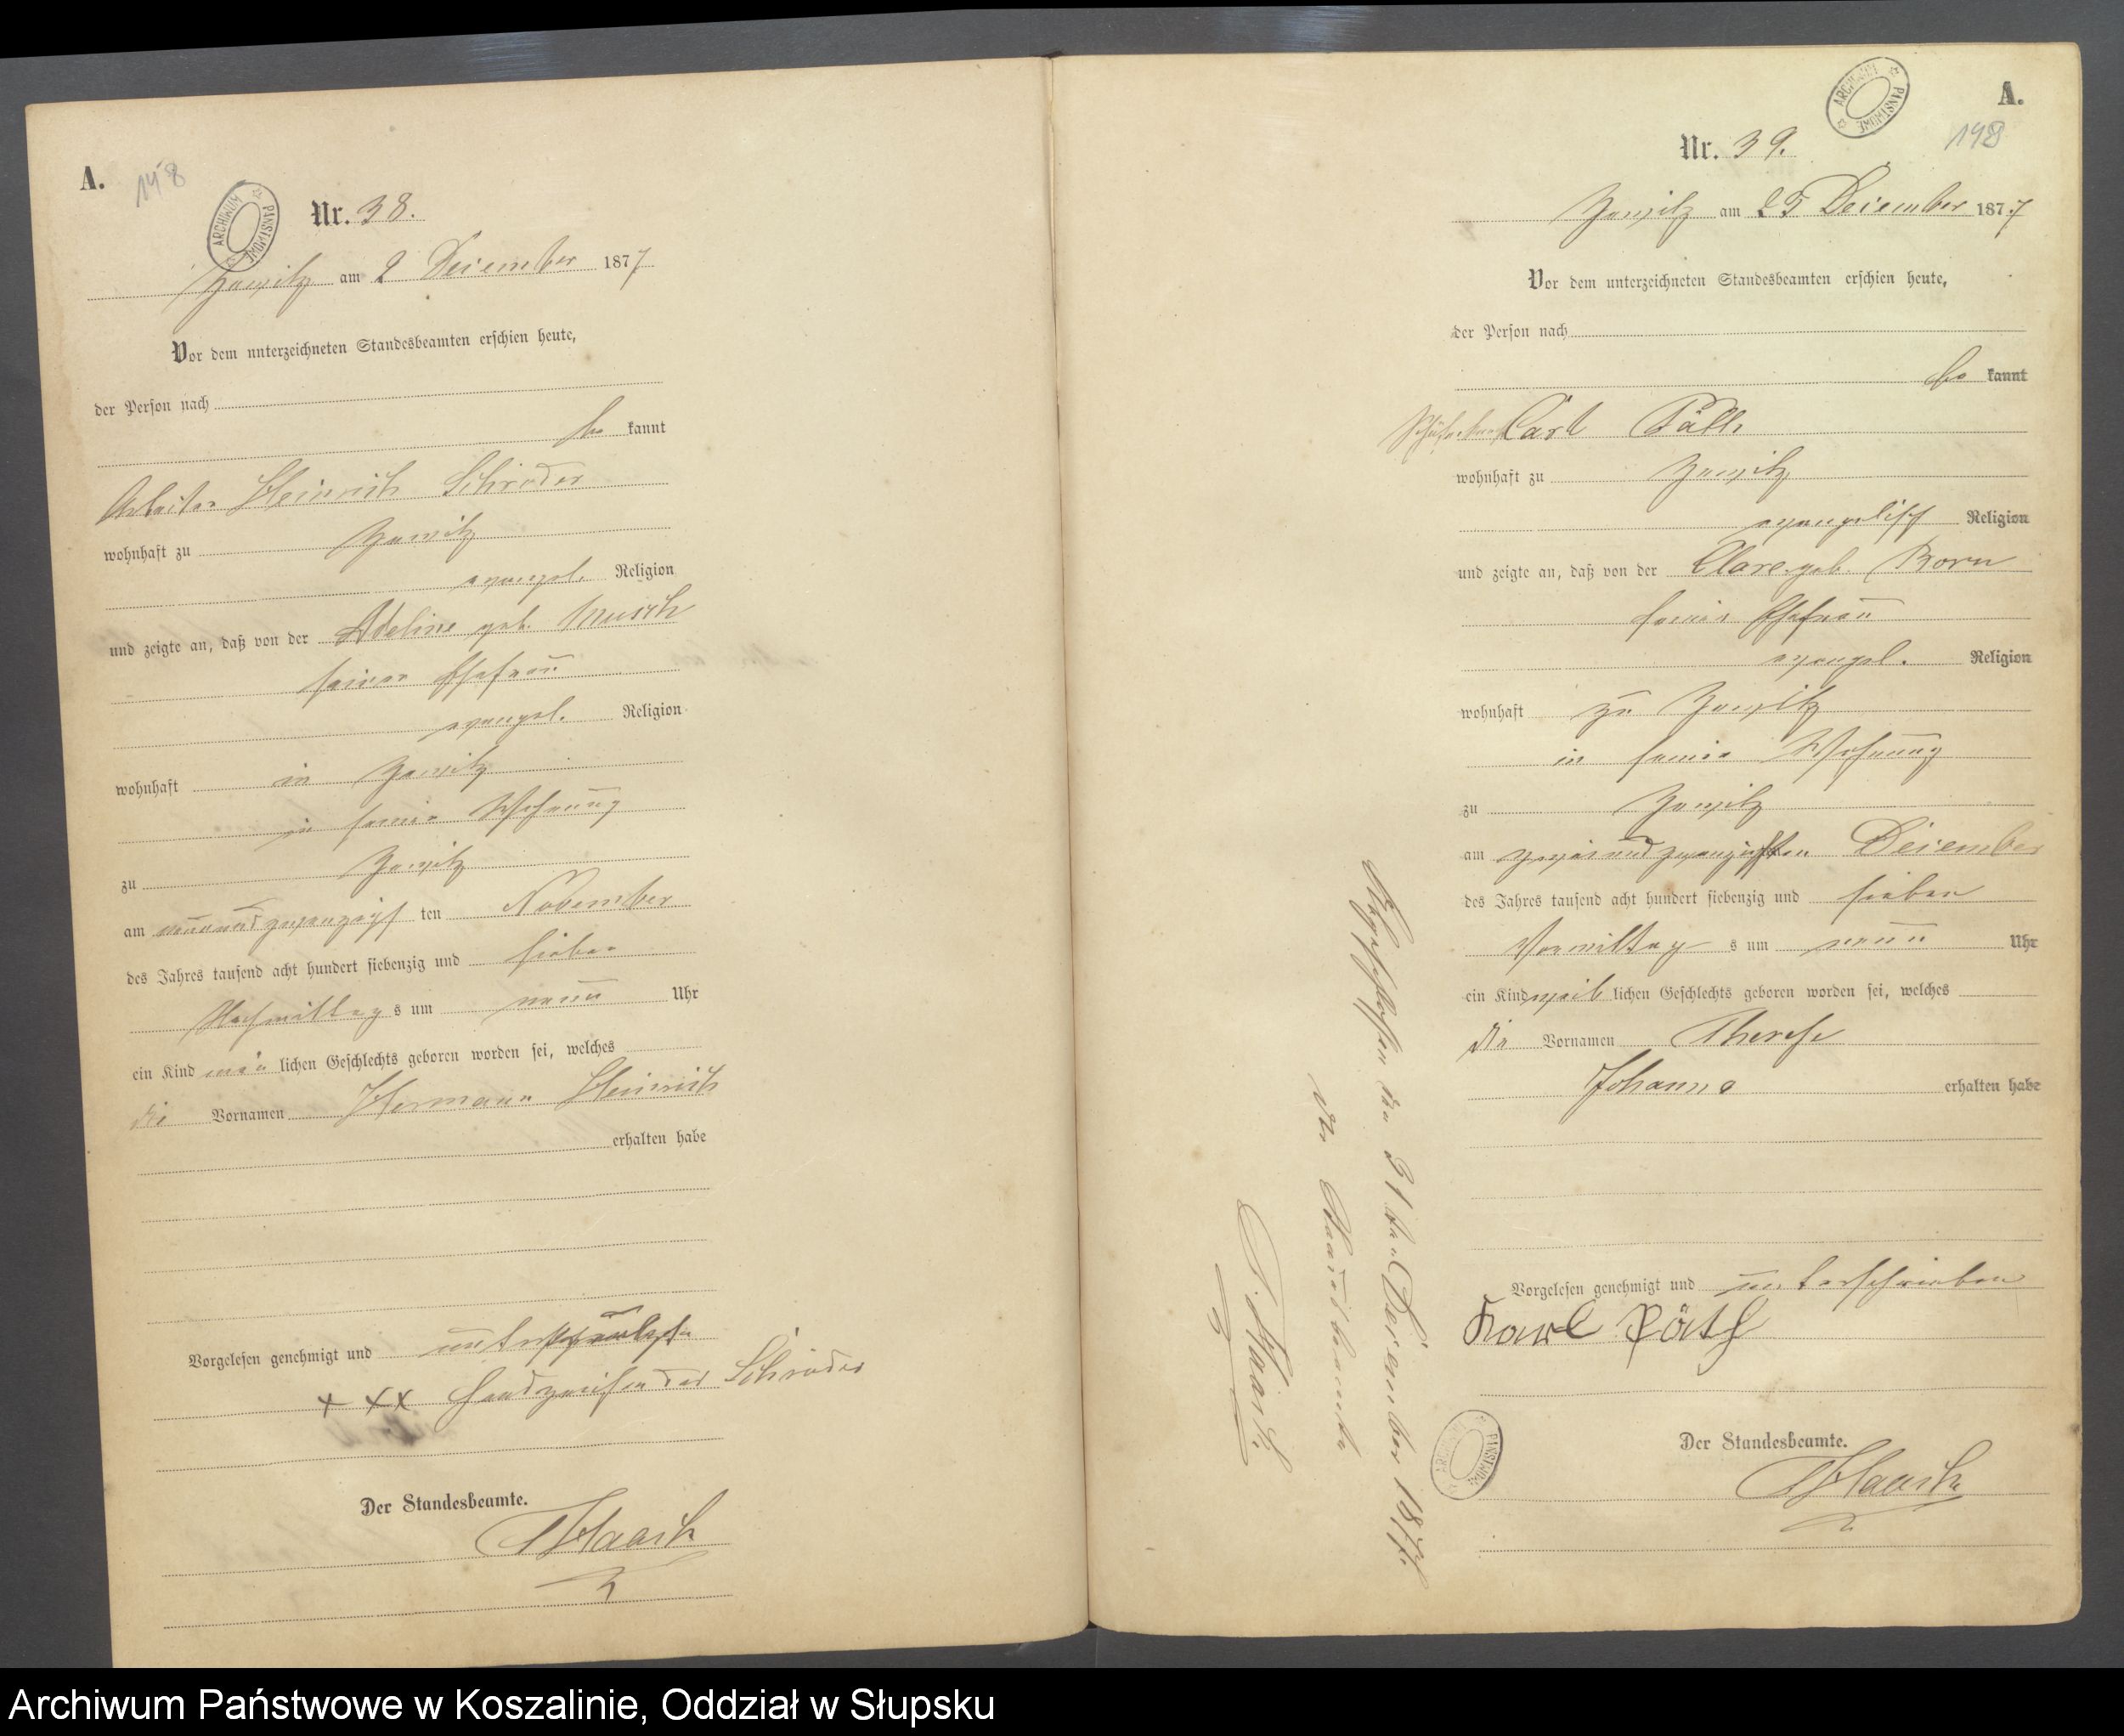 A.
148
ARCHIWUM PAŃSTWOWE
Nr. 38.
am 2 December 1877
Vor dem unterzeichneten Standesbeamten erschien heute,
der Person nach
be kannt
Arbeiter Heinrich Schröder
wohnhaft zu
evangel. Religion
und zeigte an, daß von der Adeline geb.
seiner Ehefrau
evangel. Religion
wohnhaft in
in seiner Wohnung
zu
am neunundzwanzigsten November
des Jahres tausend acht hundert siebenzig und sieben
Nachmittags um neun Uhr
ein Kind män lichen Geschlechts geboren worden sei, welches
die Vornamen Hermann Heinrich
erhalten habe
Vorgelesen genehmigt und
+ ++ Handzeichen des Schröder
Der Standesbeamte.
Haack
A.
ARCHIWUM PAŃSTWOWE
Nr. 39.
am 25 December 1877
Vor dem unterzeichneten Standesbeamten erschien heute,
der Person nach
be kannt
Carl
wohnhaft zu
evangelisch Religion
und zeigte an, daß von der Clare geb. Born
seiner Ehefrau
evangel. Religion
wohnhaft zu
in seiner Wohnung
zu
am December
des Jahres tausend acht hundert siebenzig und sieben
Vormittags um neun Uhr
ein Kind weib lichen Geschlechts geboren worden sei, welches
die Vornamen Therese
Johanne erhalten habe
Vorgelesen genehmigt und unterschrieben
Karl Päth
Der Standesbeamte.
Haack
Abgeschlossen den 31ten December 1877.
Der Standesbeamte
Haack.
ARCHIWUM PAŃSTWOWE
Archiwum Państwowe w Koszalinie, Oddział w Słupsku